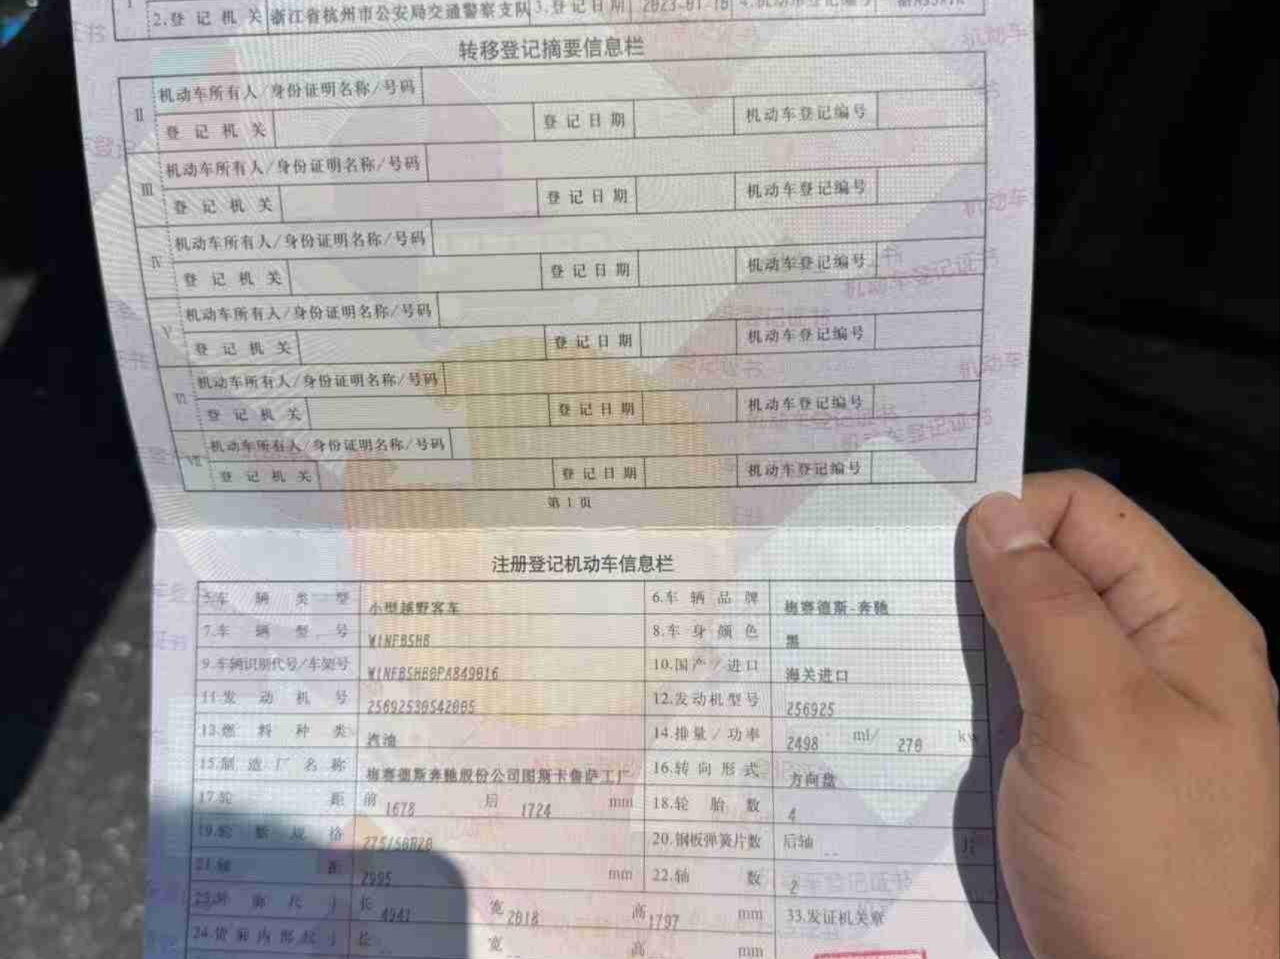 2.登记机关 浙江省杭州市公安局交通警察支队 3.登记日期 2023.01.16 4.机动车登记编号
转移登记摘要信息栏
II 机动车所有人/身份证明名称/号码
登记机关 登记日期 机动车登记编号
III 机动车所有人/身份证明名称/号码
登记机关 登记日期 机动车登记编号
IV 机动车所有人/身份证明名称/号码
登记机关 登记日期 机动车登记编号
V 机动车所有人/身份证明名称/号码
登记机关 登记日期 机动车登记编号
VI 机动车所有人/身份证明名称/号码
登记机关 登记日期 机动车登记编号
VII 机动车所有人/身份证明名称/号码
登记机关 登记日期 机动车登记编号
第1页
注册登记机动车信息栏
5.车辆类型 小型越野客车 6.车辆品牌 梅赛德斯-奔驰
7.车辆型号 W1NFB5HB 8.车身颜色 黑
9.车辆识别代号/车架号 W1NFB5HB0PA849016 10.国产/进口 海关进口
11.发动机号 25692530542005 12.发动机型号 256925
13.燃料种类 汽油 14.排量/功率 2498 ml/ 270 kw
15.制造厂名称 梅赛德斯奔驰股份公司图斯卡鲁萨工厂 16.转向形式 方向盘
17.轮距 前 1678 后 1724 mm 18.轮胎数 4
19.轮胎规格 275/50R20 20.钢板弹簧片数 后轴 -- 片
21.轴距 2995 mm 22.轴数 2
23.外廓尺寸 长 4941 宽 2018 高 1797 mm 33.发证机关章
24.货箱内部尺寸 长 -- 宽 -- 高 -- mm